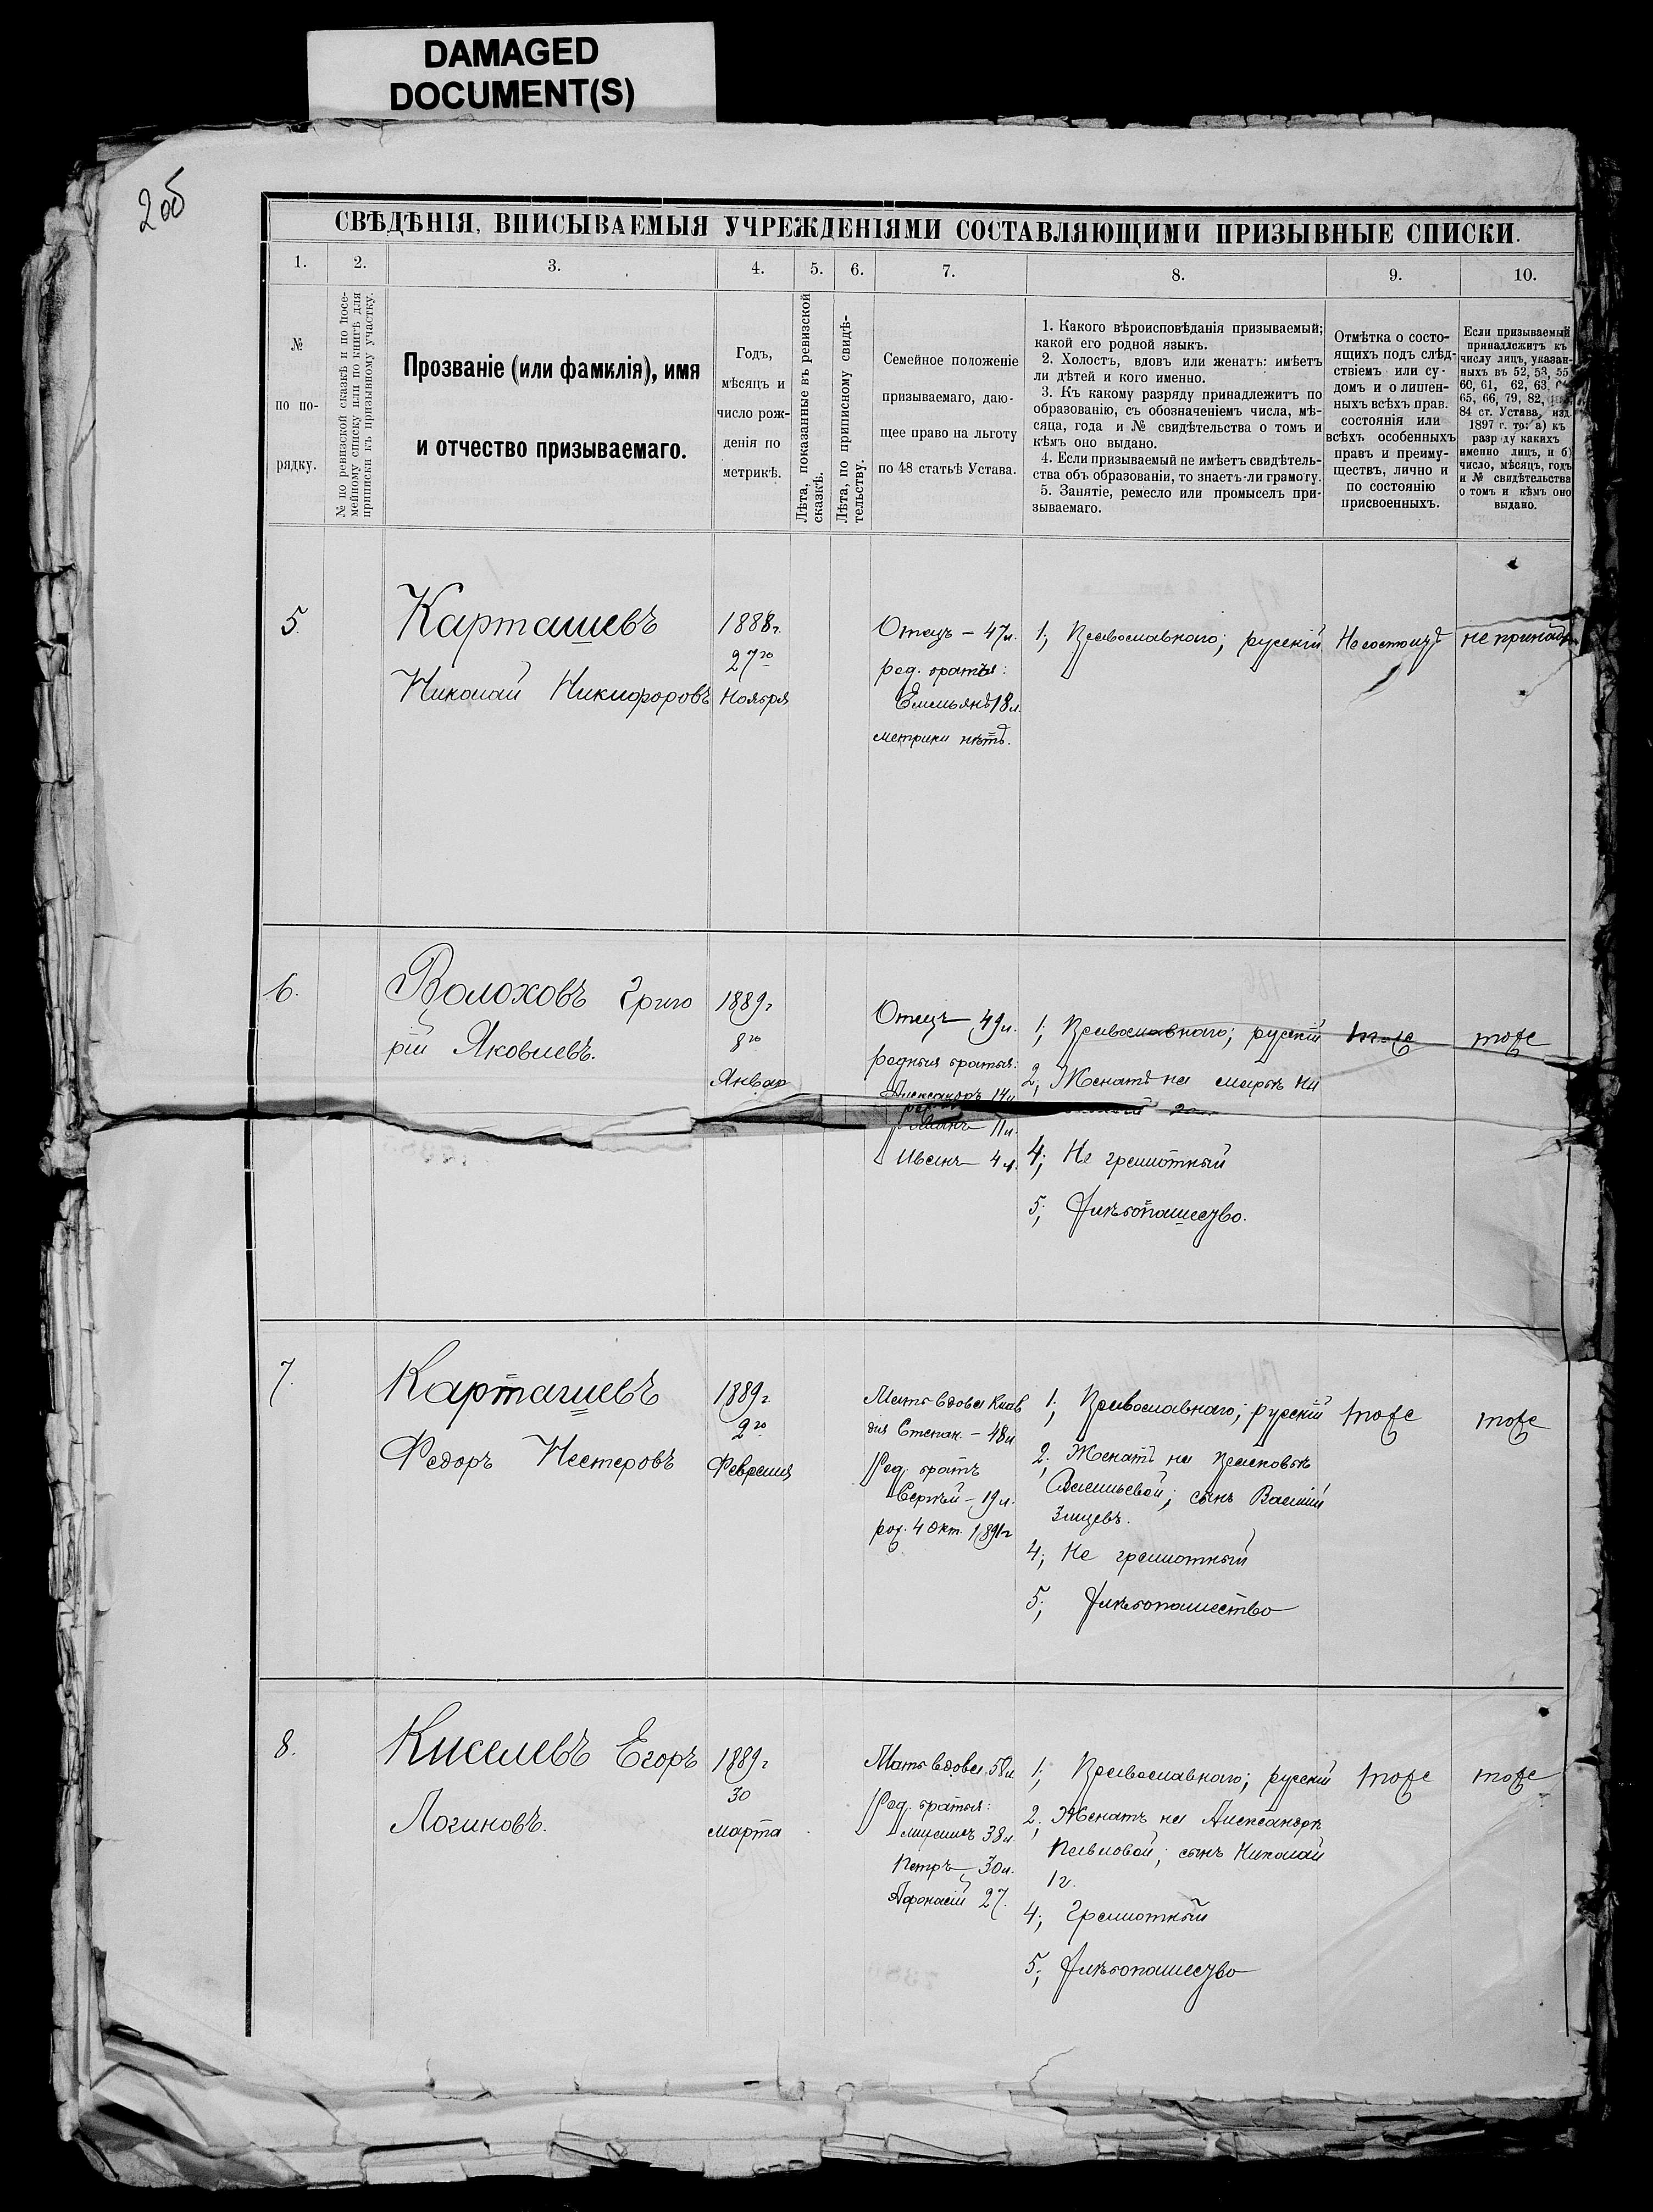 DAMAGED
DOCUMENT(S)
2об
СВѢДѢНІЯ, ВПИСЫВАЕМЫЯ УЧРЕЖДЕНІЯМИ СОСТАВЛЯЮЩИМИ ПРИЗЫВНЫЕ СПИСКИ.
1. 2. 3. 4. 5. 6. 7. 8. 9. 10.
№
по по-
рядку.
№ по ревизской сказкѣ и по посе-
мейному списку или по книгѣ для
приписки къ призывному участку.
Прозваніе (или фамилія), имя
и отчество призываемаго.
Годъ,
мѣсяцъ и
число рож-
денія по
метрикѣ.
Лѣта, показанные въ ревизской
сказкѣ.
Лѣта, по приписному свидѣ-
тельству.
Семейное положеніе
призываемаго, даю-
щее право на льготу
по 48 статьѣ Устава.
1. Какого вѣроисповѣданія призываемый;
какой его родной языкъ.
2. Холостъ, вдовъ или женатъ: имѣетъ
ли дѣтей и кого именно.
3. Къ какому разряду принадлежитъ по
образованію, съ обозначеніемъ числа, мѣ-
сяца, года и № свидѣтельства о томъ и
кѣмъ оно выдано.
4. Если призываемый не имѣетъ свидѣтель-
ства объ образованіи, то знаетъ-ли грамоту.
5. Занятіе, ремесло или промыселъ при-
зываемаго.
Отмѣтка о состо-
ящихъ подъ слѣд-
ствіемъ или су-
домъ и о лишен-
ныхъ всѣхъ прав.
состоянія или
всѣхъ особенныхъ
правъ и преиму-
ществъ, лично и
по состоянію
присвоенныхъ.
Если призываемый
принадлежитъ къ
числу лицъ, указан-
ныхъ въ 52, 53, 55
60, 61, 62, 63,
65, 66, 79, 82,
84 ст. Устава, изд.
1897 г. то: а) къ
разр ду какихъ
именно лицъ, и б)
число, мѣсяцъ, годъ
и № свидѣтельства
о томъ и кѣмъ оно
выдано.
5.
Карташевъ
Николай Никифоровъ
1888г.
27го
Ноября
Отецъ – 47л.
род. братья:
Емельянъ 18л.
метрики нѣтъ.
1; Православнаго; русскій
Не состоитъ
не принадл
6.
Волоховъ Григо
рій Яковлевъ.
1889г
8го
Январ
Отецъ – 49л.
родныя братья:
Александръ 14л
11л.
Иванъ – 4л.
1; Православнаго; русскій
2; Женатъ на
4; Не грамотный
5; Хлѣбопашество.
тоже
тоже
7.
Карташевъ
Федоръ Нестеровъ
1889г.
2го
Февраля
Мать вдова Клав
дія Степан. – 48л
Род. братъ
Сергѣй – 19л.
род. 4 Окт. 1891г
1; Православнаго; русскій
2; Женатъ на Прасковьѣ
Васильевой; сынъ Василій
3 мцевъ.
4; Не грамотный
5; Хлѣбопашество
тоже
тоже
8.
Киселевъ Егоръ
Логиновъ.
1889г
30
марта
Мать вдова 58л
Род. братья:
38л.
Петръ 30л.
Афонасій 27.
1; Православнаго; русскій
2; Женатъ на Александрѣ
Павловой; сынъ Николай
1г.
4; Грамотный
5; Хлѣбопашество
тоже
тоже